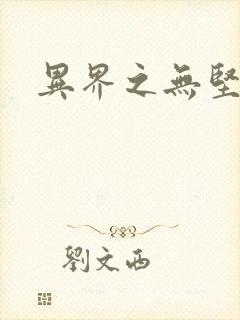 異界之無堅
劉文西